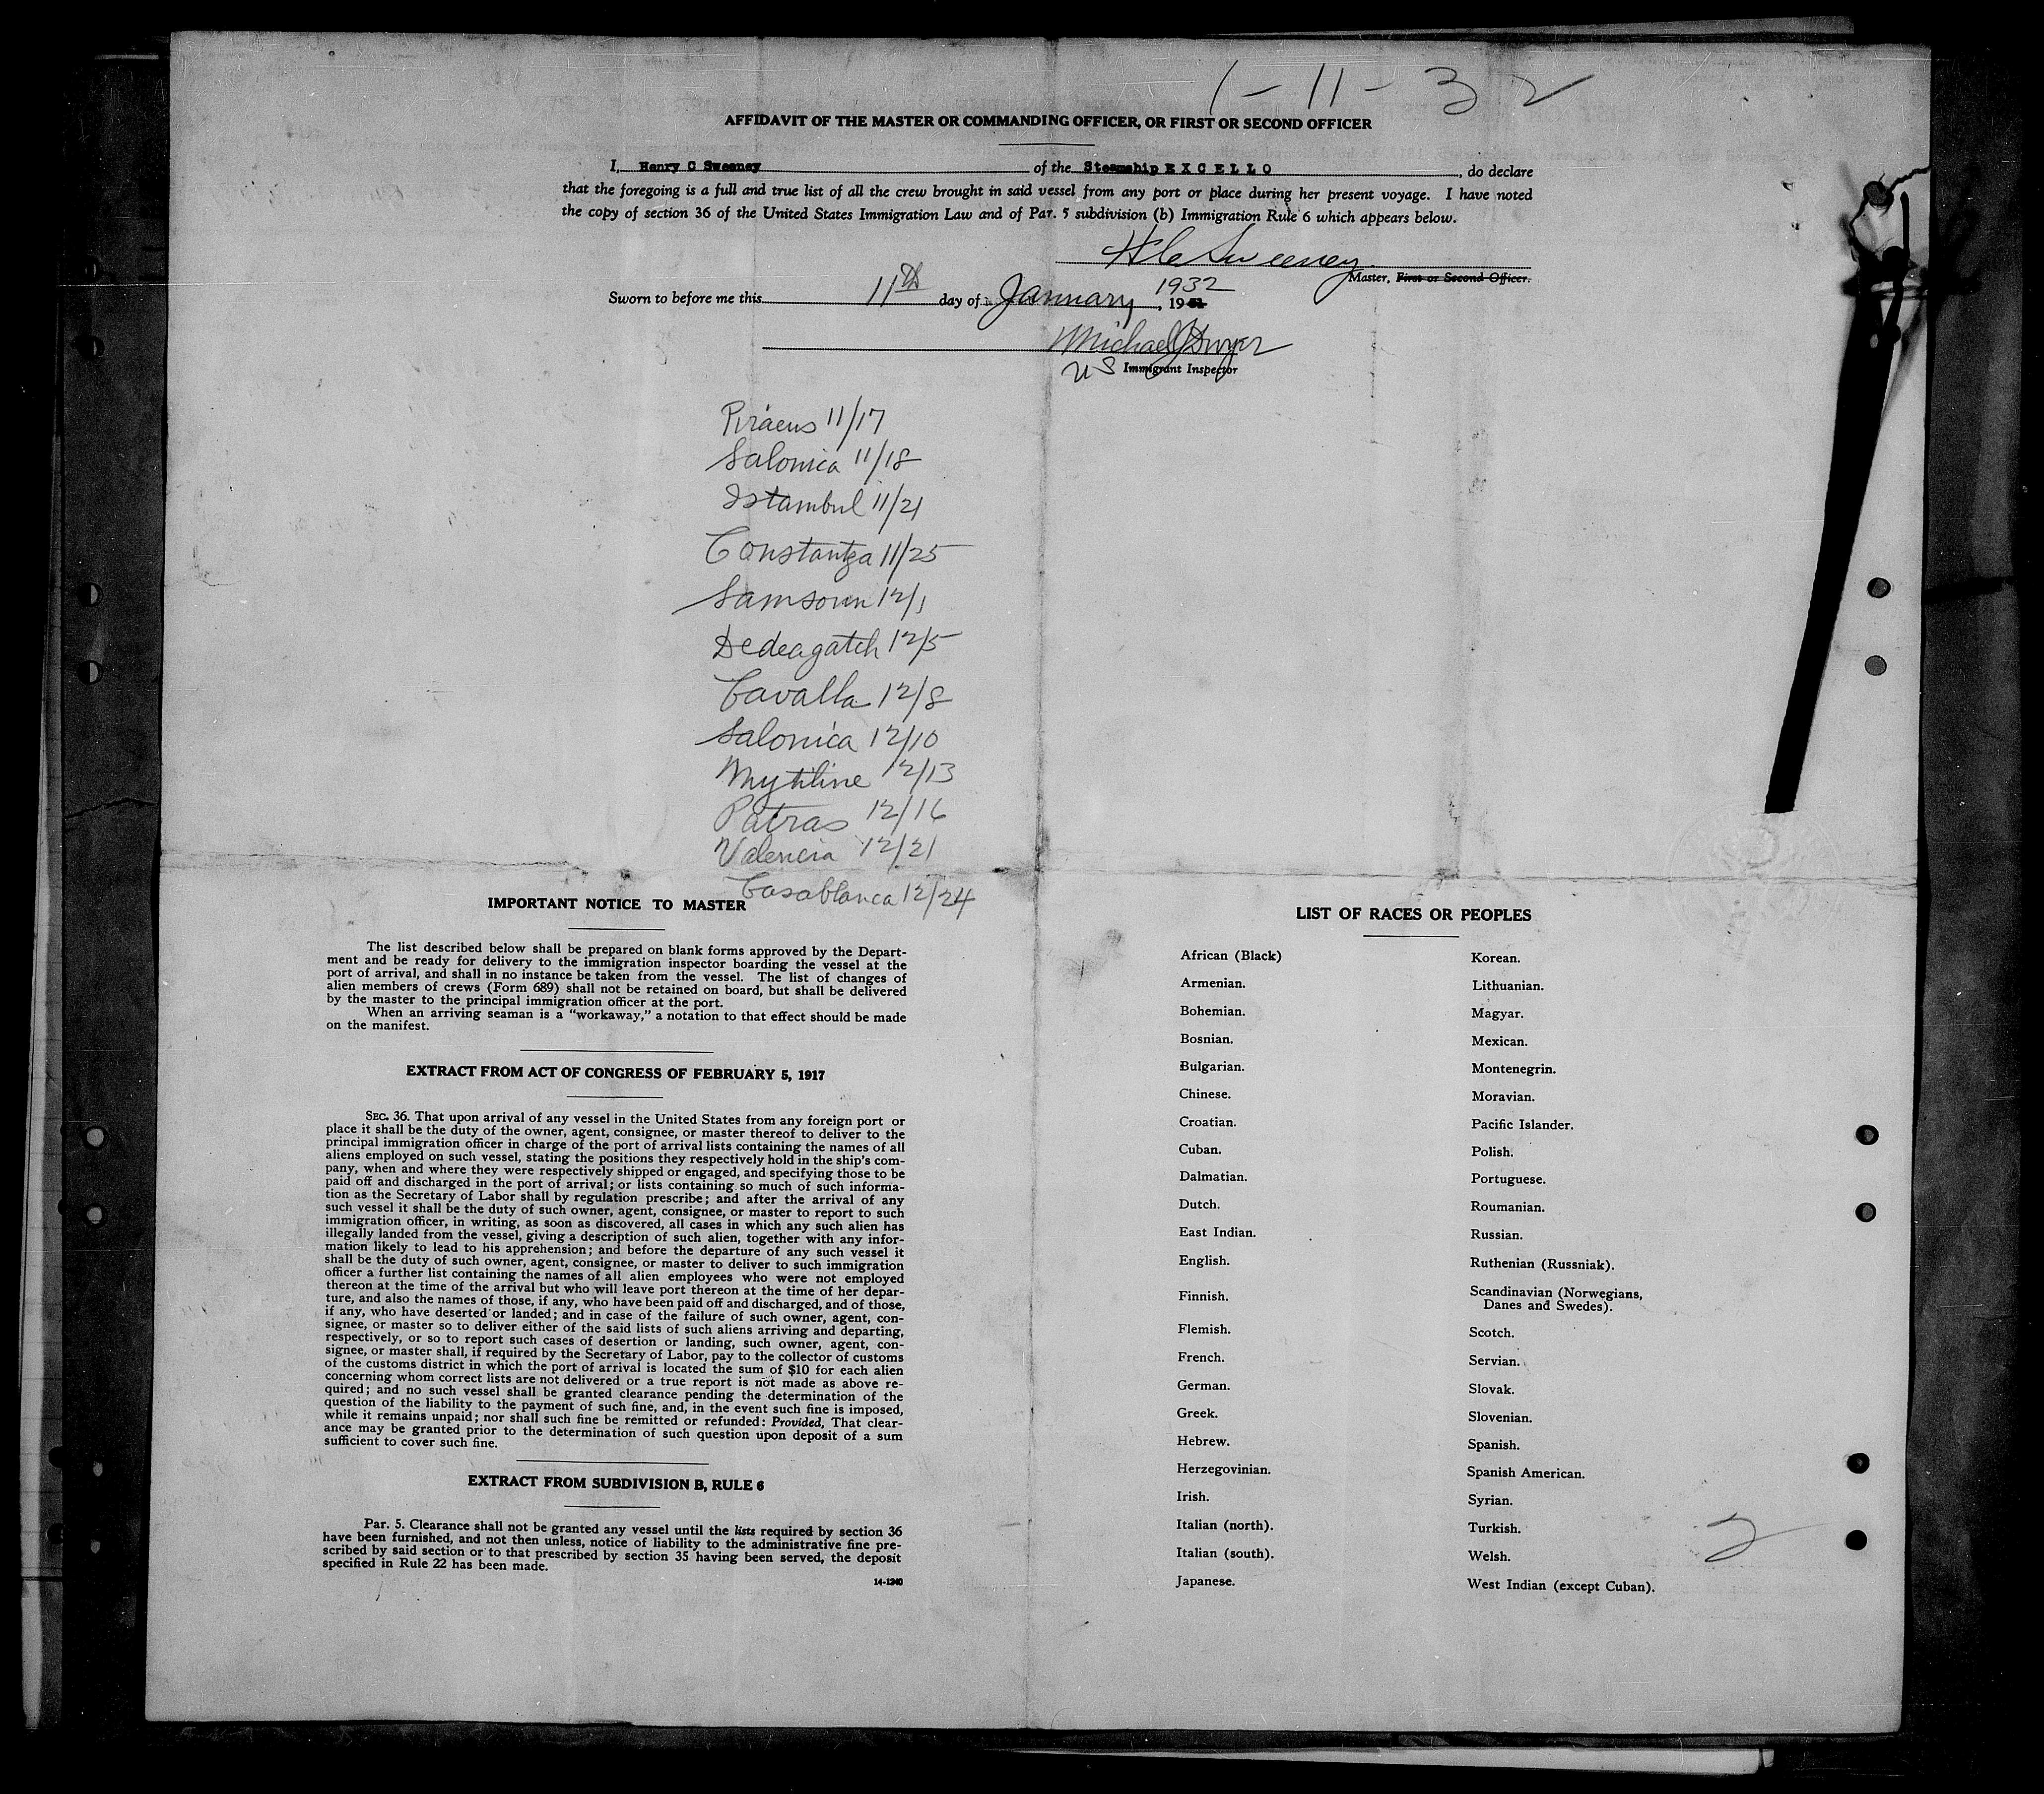 1-11-32
AFFIDAVIT OF THE MASTER OR COMMANDING OFFICER, OR FIRST OR SECOND OFFICER
I, Henry C Sweeney of the Steamship E X C E L L O, do declare
that the foregoing is a full and true list of all the crew brought in said vessel from any port or place during her present voyage. I have noted
the copy of section 36 of the United States Immigration Law and of Par. 5 subdivision (b) Immigration Rule 6 which appears below.
H C Sweeney
Master, First or Second Officer.
1932
Sworn to before me this 11th day of January, 1931
Michael J Dwyer
US Immigrant Inspector
Piraeus 11/17
Salonica 11/18
Istambul 11/21
Constantza 11/25
Samsoun 12/1
Dedeagatch 12/5
Cavalla 12/8
Salonica 12/10
Mytiline 12/13
Patras 12/16
Valencia 12/21
Casablanca 12/24
IMPORTANT NOTICE TO MASTER
The list described below shall be prepared on blank forms approved by the Depart-
ment and be ready for delivery to the immigration inspector boarding the vessel at the
port of arrival, and shall in no instance be taken from the vessel. The list of changes of
alien members of crews (Form 689) shall not be retained on board, but shall be delivered
by the master to the principal immigration officer at the port.
When an arriving seaman is a "workaway," a notation to that effect should be made
on the manifest.
EXTRACT FROM ACT OF CONGRESS OF FEBRUARY 5, 1917
SEC. 36. That upon arrival of any vessel in the United States from any foreign port or
place it shall be the duty of the owner, agent, consignee, or master thereof to deliver to the
principal immigration officer in charge of the port of arrival lists containing the names of all
aliens employed on such vessel, stating the positions they respectively hold in the ship's com-
pany, when and where they were respectively shipped or engaged, and specifying those to be
paid off and discharged in the port of arrival; or lists containing so much of such informa-
tion as the Secretary of Labor shall by regulation prescribe; and after the arrival of any
such vessel it shall be the duty of such owner, agent, consignee, or master to report to such
immigration officer, in writing, as soon as discovered, all cases in which any such alien has
illegally landed from the vessel, giving a description of such alien, together with any infor-
mation likely to lead to his apprehension; and before the departure of any such vessel it
shall be the duty of such owner, agent, consignee, or master to deliver to such immigration
officer a further list containing the names of all alien employees who were not employed
thereon at the time of the arrival but who will leave port thereon at the time of her depar-
ture, and also the names of those, if any, who have been paid off and discharged, and of those,
if any, who have deserted or landed; and in case of the failure of such owner, agent, con-
signee, or master so to deliver either of the said lists of such aliens arriving and departing,
respectively, or so to report such cases of desertion or landing, such owner, agent, con-
signee, or master shall, if required by the Secretary of Labor, pay to the collector of customs
of the customs district in which the port of arrival is located the sum of $10 for each alien
concerning whom correct lists are not delivered or a true report is not made as above re-
quired; and no such vessel shall be granted clearance pending the determination of the
question of the liability to the payment of such fine, and, in the event such fine is imposed,
while it remains unpaid; nor shall such fine be remitted or refunded: Provided, That clear-
ance may be granted prior to the determination of such question upon deposit of a sum
sufficient to cover such fine.
EXTRACT FROM SUBDIVISION B, RULE 6
Par. 5. Clearance shall not be granted any vessel until the lists required by section 36
have been furnished, and not then unless, notice of liability to the administrative fine pre-
scribed by said section or to that prescribed by section 35 having been served, the deposit
specified in Rule 22 has been made.
14-1240
LIST OF RACES OR PEOPLES
African (Black)
Armenian.
Bohemian.
Bosnian.
Bulgarian.
Chinese.
Croatian.
Cuban.
Dalmatian.
Dutch.
East Indian.
English.
Finnish.
Flemish.
French.
German.
Greek.
Hebrew.
Herzegovinian.
Irish.
Italian (north).
Italian (south).
Japanese.
Korean.
Lithuanian.
Magyar.
Mexican.
Montenegrin.
Moravian.
Pacific Islander.
Polish.
Portuguese.
Roumanian.
Russian.
Ruthenian (Russniak).
Scandinavian (Norwegians,
Danes and Swedes).
Scotch.
Servian.
Slovak.
Slovenian.
Spanish.
Spanish American.
Syrian.
Turkish.
Welsh.
West Indian (except Cuban).
2